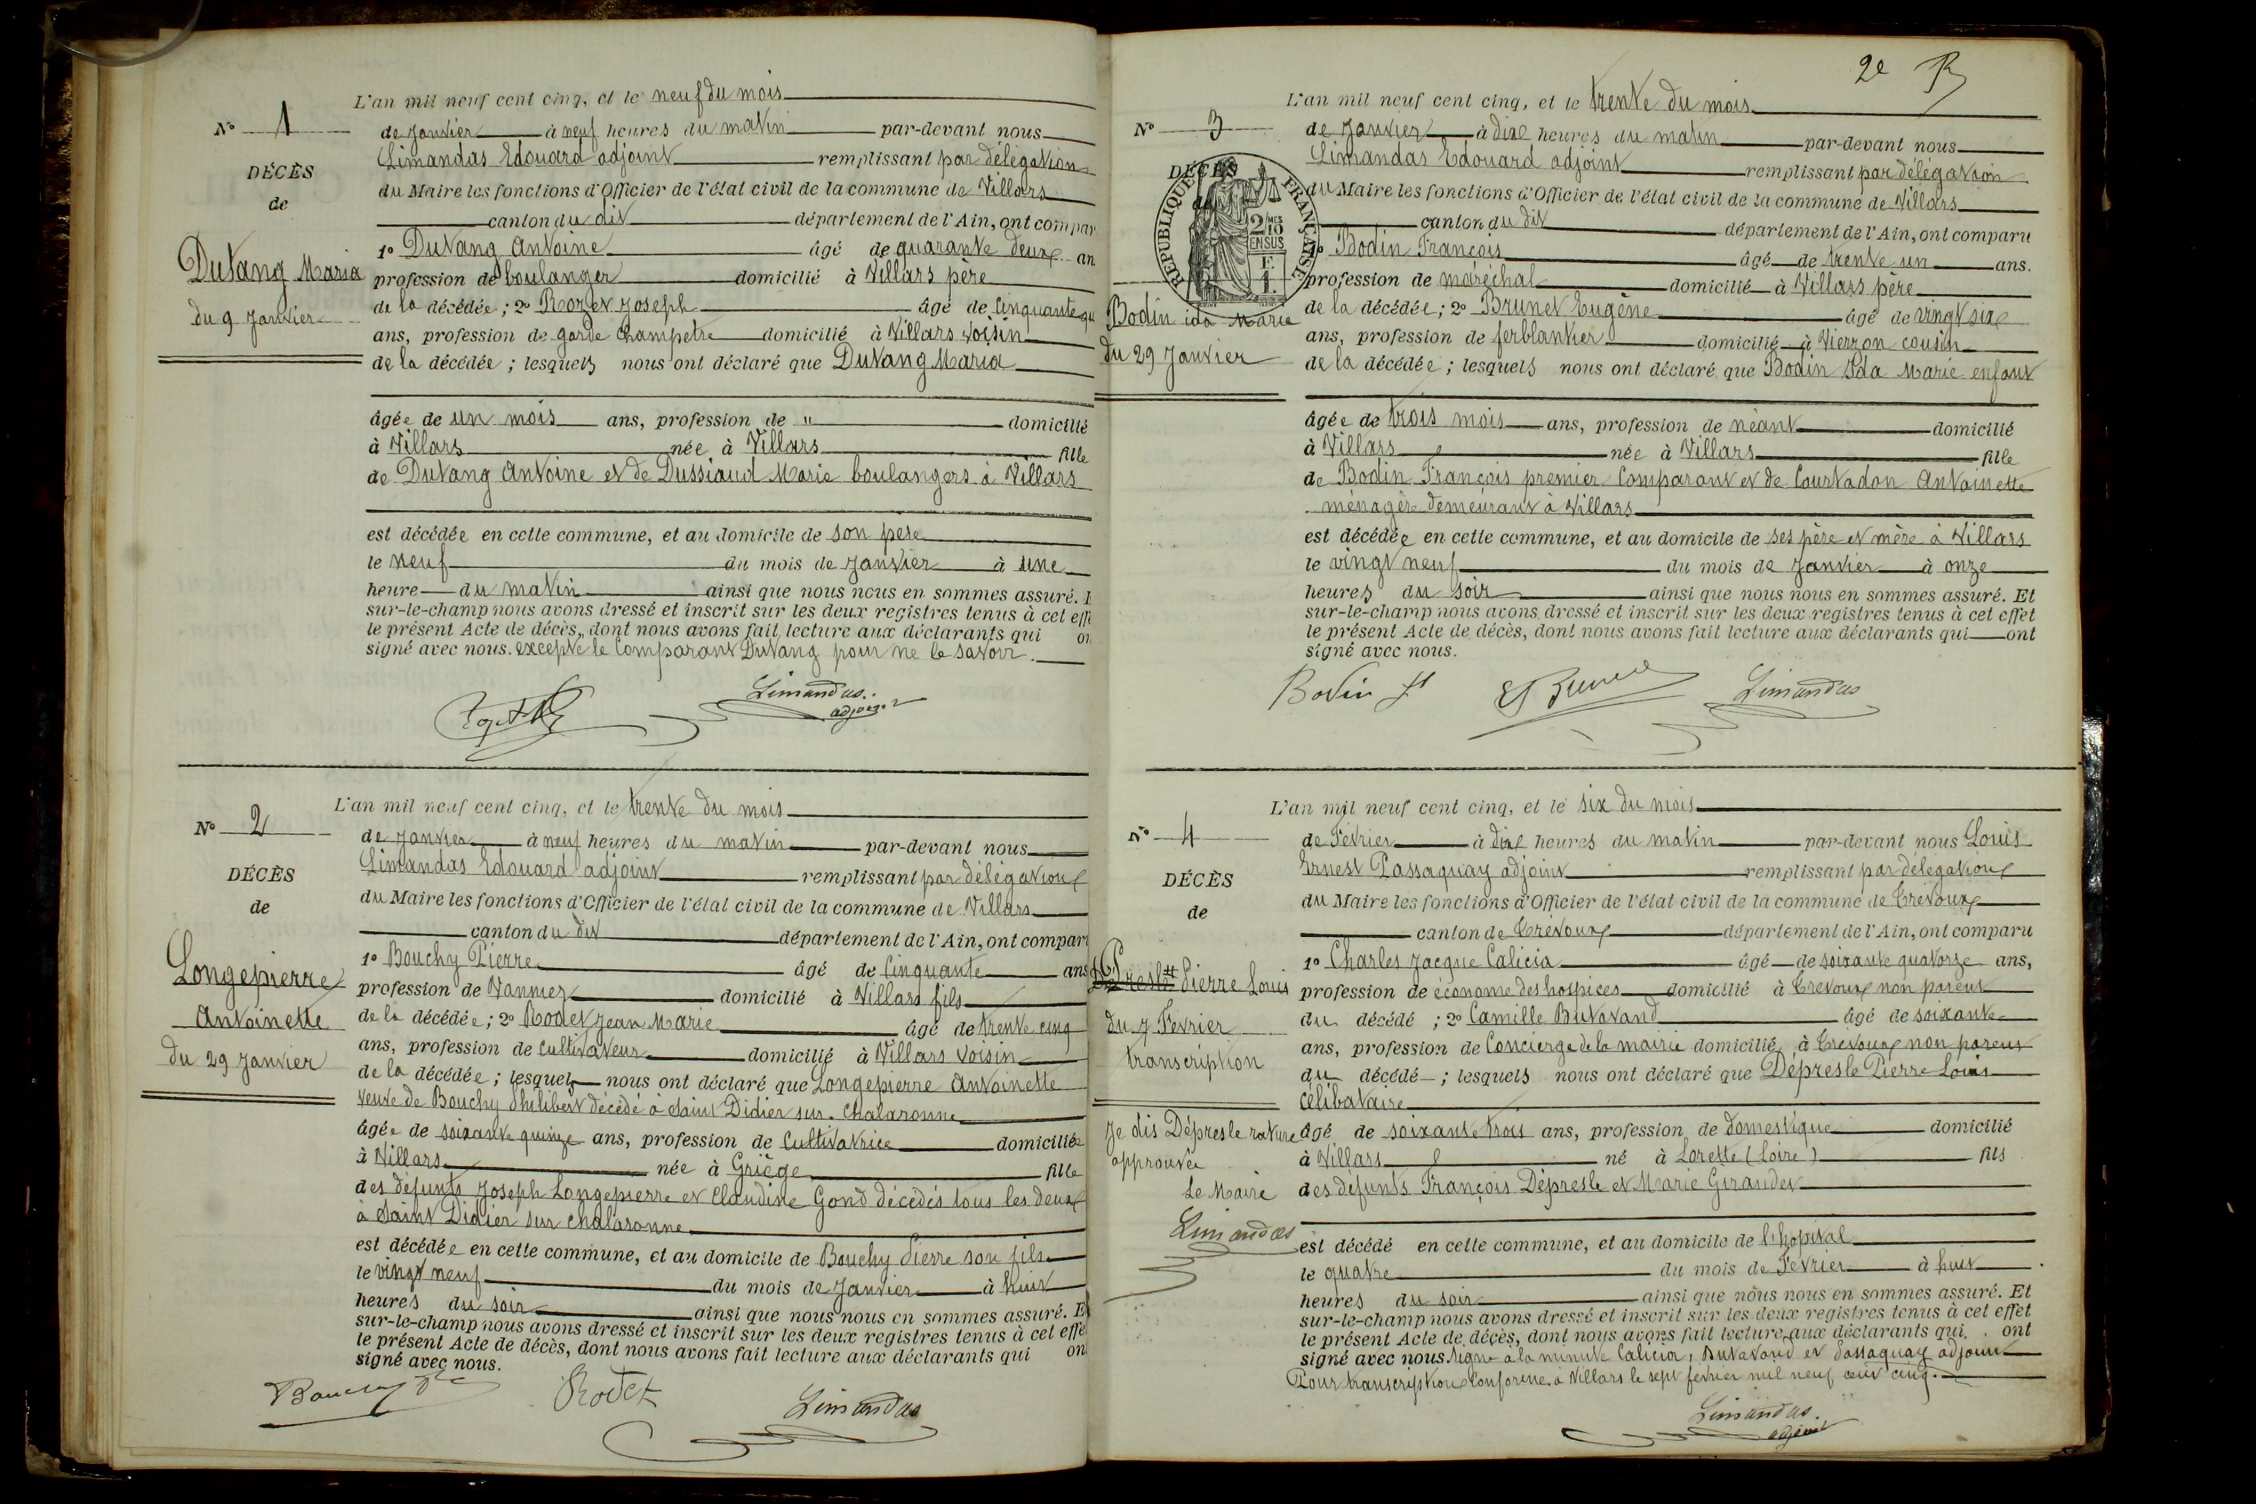 L'an mil neuf cent cinq, et le neuf du mois
N° 1
de Janvier à neuf heures du matin par-devant nous
Limandas Edouard adjoint remplissant par délégation
DÉCÈS
du Maire les fonctions d'Officier de l'état civil de la commune de Villars
de
canton du dit département de l'Ain, ont compar
1° Dutang Antoine âgé de quarante deux an
Dutang Maria
profession de boulanger domicilié à Villars père
du 9 Janvier
de la décédée ; 2° Rozet Joseph âgé de cinquante qu
ans, profession de garde champetre domicilié à Villars voisin
de la décédée ; lesquels nous ont déclaré que Dutang Maria
âgée de un mois ans, profession de " domicilié
à Villars née à Villars fille
de Dutang Antoine et de Dussiaud Marie boulangers à Villars
est décédée en cette commune, et au domicile de son père
le neuf du mois de Janvier à une
heure du matin ainsi que nous nous en sommes assuré. E
sur-le-champ nous avons dressé et inscrit sur les deux registres tenus à cet effe
le présent Acte de décès, dont nous avons fait lecture aux déclarants qui on
signé avec nous. excepté le comparant Dutang pour ne le savoir.
Limandas
adjoint
L'an mil neuf cent cinq, et le trente du mois
N° 2
de Janvier à neuf heures du matin par-devant nous
Limandas Edouard adjoint remplissant par délégation
DÉCÈS
du Maire les fonctions d'Officier de l'état civil de la commune de Villars
de
canton du dit département de l'Ain, ont compar
1° Bouchy Pierre âgé de cinquante ans
Longepierre
profession de Vannier domicilié à Villars fils
Antoinette
de la décédée ; 2° Rodet Jean Marie âgé de trente cinq
du 29 Janvier
ans, profession de cultivateur domicilié à Villars voisin
de la décédée ; lesquels nous ont déclaré que Longepierre Antoinette
veuve de Bouchy Philibert décédé à Saint Didier sur Chalaronne
âgée de soixante quinze ans, profession de cultivatrice domiciliée
à Villars née à Griège fille
des défunts Joseph Longepierre et Claudine Gond décédés tous les deux
à Saint Didier sur Chalaronne
est décédée en cette commune, et au domicile de Bouchy Pierre son fils
le vingt neuf du mois de Janvier à huit
heures du soir ainsi que nous nous en sommes assuré. E
sur-le-champ nous avons dressé et inscrit sur les deux registres tenus à cet effe
le présent Acte de décès, dont nous avons fait lecture aux déclarants qui on
signé avec nous.
Bouchy Rodet Limandas
2e
L'an mil neuf cent cinq, et le trente du mois
N° 3
de Janvier à dix heures du matin par-devant nous
Limandas Edouard adjoint remplissant par délégation
DÉCÈS
RÉPUBLIQUE FRANÇAISE
2/10 EN SUS
du Maire les fonctions d'Officier de l'état civil de la commune de Villars
canton du dit département de l'Ain, ont comparu
1° Bodin François âgé de trente un ans.
profession de maréchal domicilié à Villars père
Bodin ida Marie
de la décédée ; 2° Brunet Eugène âgé de vingt six
du 29 Janvier
ans, profession de ferblantier domicilié à Vierzon cousin
de la décédée ; lesquels nous ont déclaré que Bodin Ida Marie enfant
âgée de trois mois ans, profession de néant domicilié
à Villars née à Villars fille
de Bodin François premier comparant et de Courtadon Antoinette
ménagère demeurant à Villars
est décédée en cette commune, et au domicile de ses père et mère à Villars
le vingt neuf du mois de Janvier à onze
heures du soir ainsi que nous nous en sommes assuré. Et
sur-le-champ nous avons dressé et inscrit sur les deux registres tenus à cet effet
le présent Acte de décès, dont nous avons fait lecture aux déclarants qui ont
signé avec nous.
Bodin E Brunet Limandas
L'an mil neuf cent cinq, et le six du mois
N° 4
de Février à dix heures du matin par-devant nous Louis
Ernest Passaquay adjoint remplissant par délégation
DÉCÈS
du Maire les fonctions d'Officier de l'état civil de la commune de Trévoux
de
canton de Trévoux département de l'Ain, ont comparu
1° Charles Jacque Calicia âgé de soixante quatorze ans,
Pierre Louis
profession de économe des hospices domicilié à Trévoux non parent
du 7 Février
du décédé ; 2° Camille Butavand âgé de soixante
transcription
ans, profession de Concierge de la mairie domicilié à Trévoux non parent
du décédé ; lesquels nous ont déclaré que Dépresle Pierre Louis
célibataire
Je dis Dépresle rature
âgé de soixante trois ans, profession de domestique domicilié
approuvée
à Villars né à Lorette (Loire) fils
Le Maire
des défunts François Dépresle et Marie Girandet
Limandas
est décédé en cette commune, et au domicile de l'hopital
le quatre du mois de Février à huit
heures du soir ainsi que nous nous en sommes assuré. Et
sur-le-champ nous avons dressé et inscrit sur les deux registres tenus à cet effet
le présent Acte de décès, dont nous avons fait lecture aux déclarants qui ont
signé avec nous. Signé à la minute Calicia, Butavand et Passaquay adjoint
Pour transcription conforme à Villars le sept février mil neuf cent cinq.
Limandas
adjoint